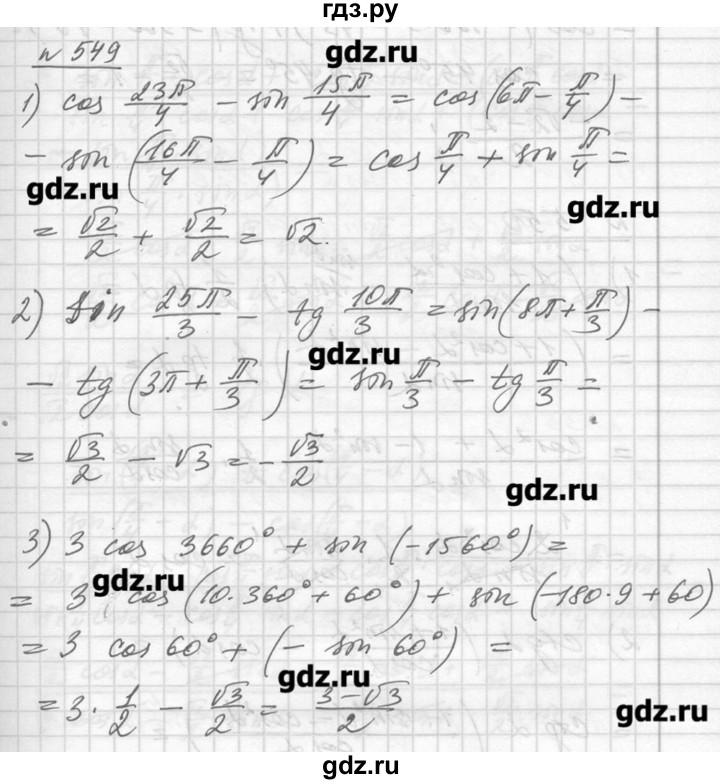 гдз.ру
gdz.ru
№ 549
1) cos 23π/4 - sin 15π/4 = cos(6π - π/4) -
- sin(16π/4 - π/4) = cos π/4 + sin π/4 =
gdz.ru
gdz.ru
= √2/2 + √2/2 = √2.
2) sin 25π/3 - tg 10π/3 = sin(8π + π/3) -
gdz.ru
- tg(3π + π/3) = sin π/3 - tg π/3 =
= √3/2 - √3 = - √3/2
gdz.ru
3) 3 cos 3660° + sin (-1560°) =
gdz.ru
= 3 cos(10·360° + 60°) + sin(-180·9 + 60)
= 3 cos 60° + (- sin 60°) =
gdz.ru
= 3 · 1/2 - √3/2 = 3-√3/2
gdz.ru
gdz.ru